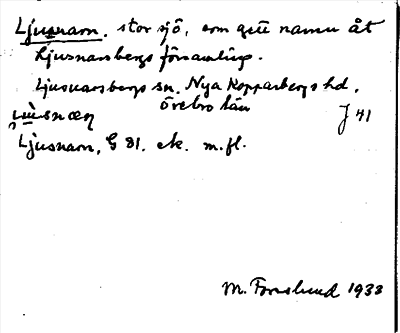 Ljusnarn, stor sjö, som gett namn åt
Ljusnarsbergs församling.
Ljusnarsbergs sn. Nya Kopparbergs hd.
Örebro län J 41
Ljusnarn, G 81. etc. m.fl.
M. Forslund 1933